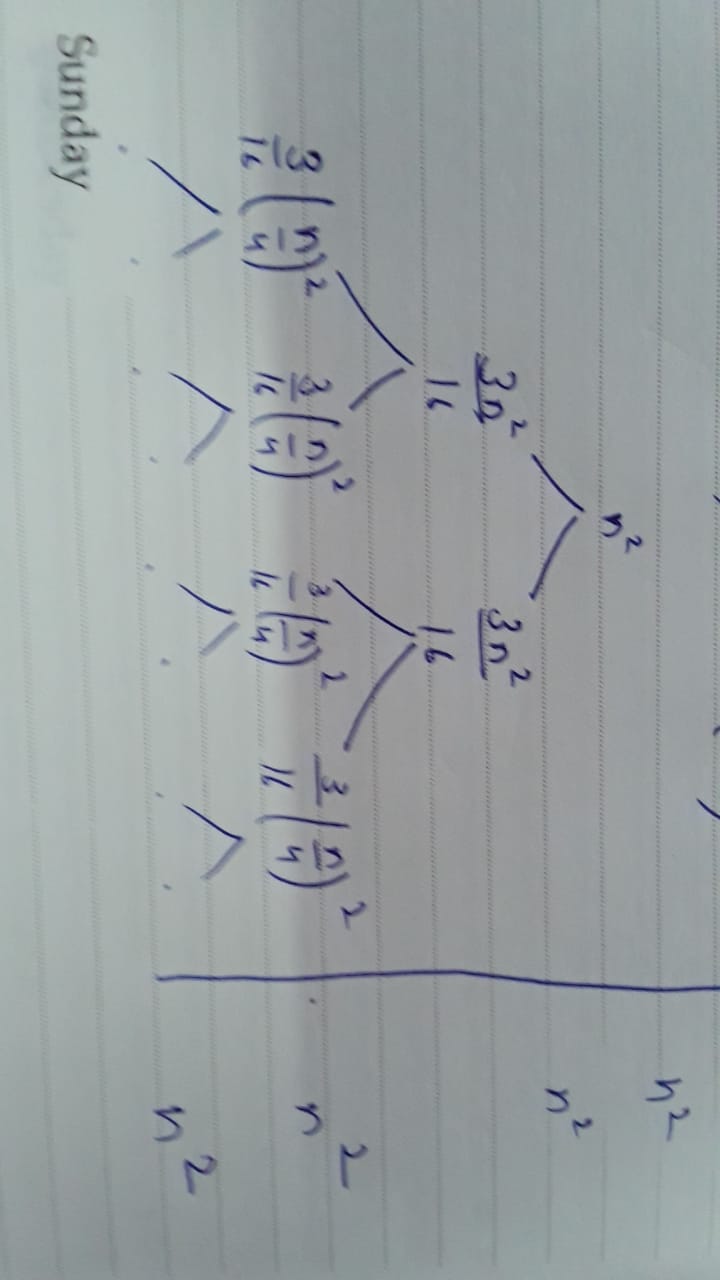 n²
n²
n²
3n²/16 3n²/16
3/16 (n/4)² 3/16 (n/4)² 3/16 (n/4)² 3/16 (n/4)² n²
n²
Sunday